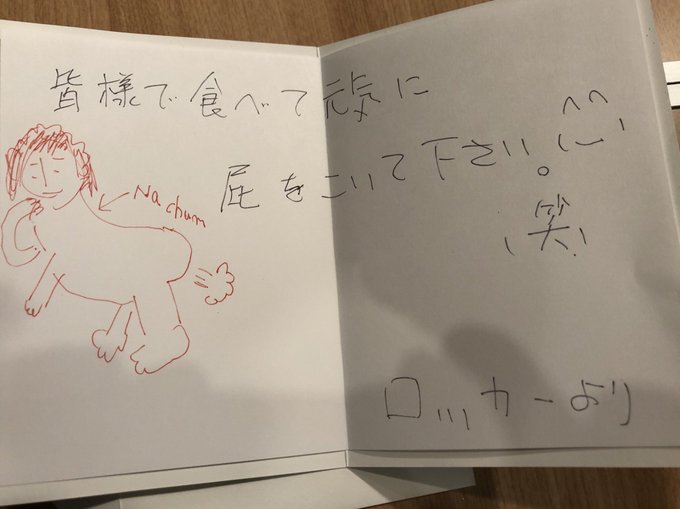 皆様で食べて元気に
屁をこいて下さい。(^^)
(笑)
Nachum
ロッカーより